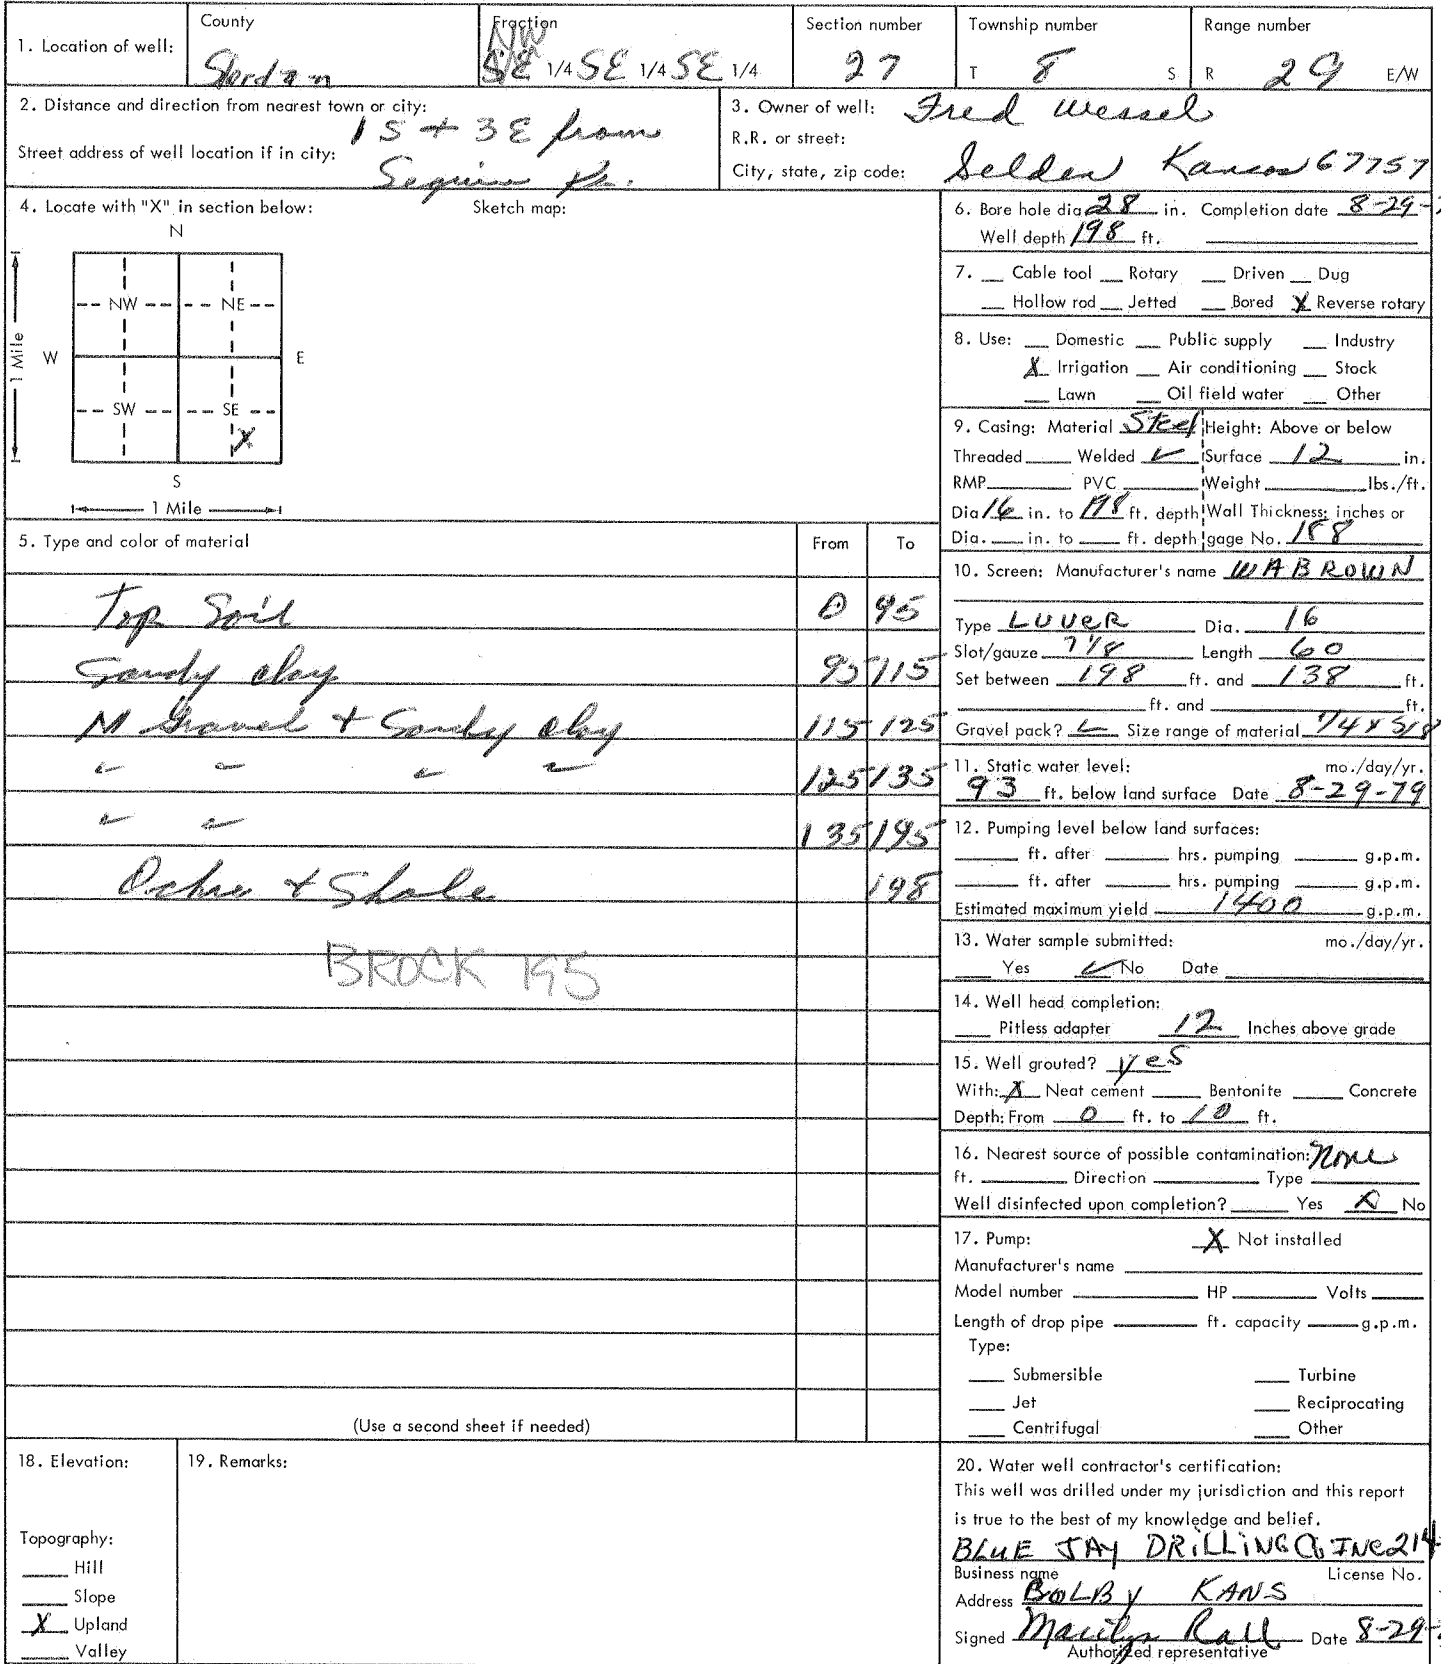 1. Location of well:
County
Fraction
NW
SE 1/4 SE 1/4 SE 1/4
Section number
27
Township number
T 8 S
Range number
R 29 E/W
2. Distance and direction from nearest town or city:
1 S + 3 E from
Street address of well location if in city:
Seguin
3. Owner of well: Fred Wessel
R.R. or street:
City, state, zip code: Selden Kansas 67757
4. Locate with "X" in section below:
Sketch map:
N
NW NE
W E
1 Mile
SW SE
X
S
1 Mile
5. Type and color of material From To
Top Soil 0 95
Sandy clay 95 115
M Gravel + Sandy clay 115 125
" " " " 125 135
" " 135 195
Ochre + Shale 198
BROCK 195
(Use a second sheet if needed)
6. Bore hole dia 28 in. Completion date 8-29-
Well depth 198 ft.
7. Cable tool Rotary Driven Dug
Hollow rod Jetted Bored X Reverse rotary
8. Use: Domestic Public supply Industry
X Irrigation Air conditioning Stock
Lawn Oil field water Other
9. Casing: Material Steel Height: Above or below
Threaded Welded ✓ Surface 12 in.
RMP PVC Weight lbs./ft.
Dia 16 in. to 198 ft. depth Wall Thickness: inches or
Dia. in. to ft. depth gage No. 188
10. Screen: Manufacturer's name WA BROWN
Type LUVER Dia. 16
Slot/gauze Length 60
Set between 198 ft. and 138 ft.
ft. and ft.
Gravel pack? ✓ Size range of material 1/4 x 5/8
11. Static water level: mo./day/yr.
93 ft. below land surface Date 8-29-79
12. Pumping level below land surfaces:
ft. after hrs. pumping g.p.m.
ft. after hrs. pumping g.p.m.
Estimated maximum yield 1400 g.p.m.
13. Water sample submitted: mo./day/yr.
Yes ✓ No Date
14. Well head completion:
Pitless adapter 12 Inches above grade
15. Well grouted? yes
With: X Neat cement Bentonite Concrete
Depth: From 0 ft. to 10 ft.
16. Nearest source of possible contamination: None
ft. Direction Type
Well disinfected upon completion? Yes X No
17. Pump: X Not installed
Manufacturer's name
Model number HP Volts
Length of drop pipe ft. capacity g.p.m.
Type:
Submersible Turbine
Jet Reciprocating
Centrifugal Other
18. Elevation:
Topography:
Hill
Slope
X Upland
Valley
19. Remarks:
20. Water well contractor's certification:
This well was drilled under my jurisdiction and this report
is true to the best of my knowledge and belief.
BLUE JAY DRILLING Co INC 214
Business name License No.
Address COLBY KANS
Signed Marilyn Rall Date 8-29-
Authorized representative